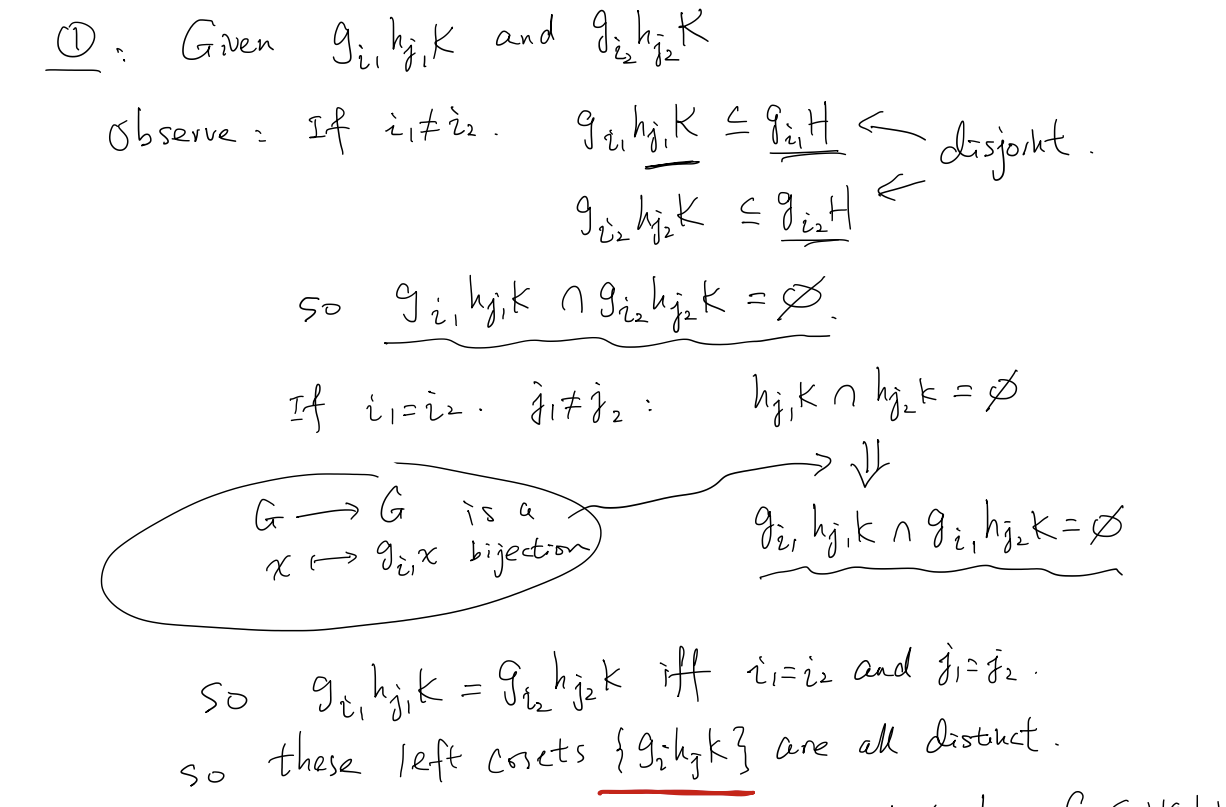 ①: Given g_{i_1} h_{j_1} K and g_{i_2} h_{j_2} K
Observe: If i_1 ≠ i_2. g_{i_1} h_{j_1} K ⊆ g_{i_1} H ← disjoint.
g_{i_2} h_{j_2} K ⊆ g_{i_2} H ←
so g_{i_1} h_{j_1} K ∩ g_{i_2} h_{j_2} K = ∅.
If i_1 = i_2. j_1 ≠ j_2: h_{j_1} K ∩ h_{j_2} K = ∅
⇓
G → G is a
x ↦ g_{i_1} x bijection
g_{i_1} h_{j_1} K ∩ g_{i_1} h_{j_2} K = ∅
so g_{i_1} h_{j_1} K = g_{i_2} h_{j_2} K iff i_1 = i_2 and j_1 = j_2.
so these left cosets {g_i h_j K} are all distinct.